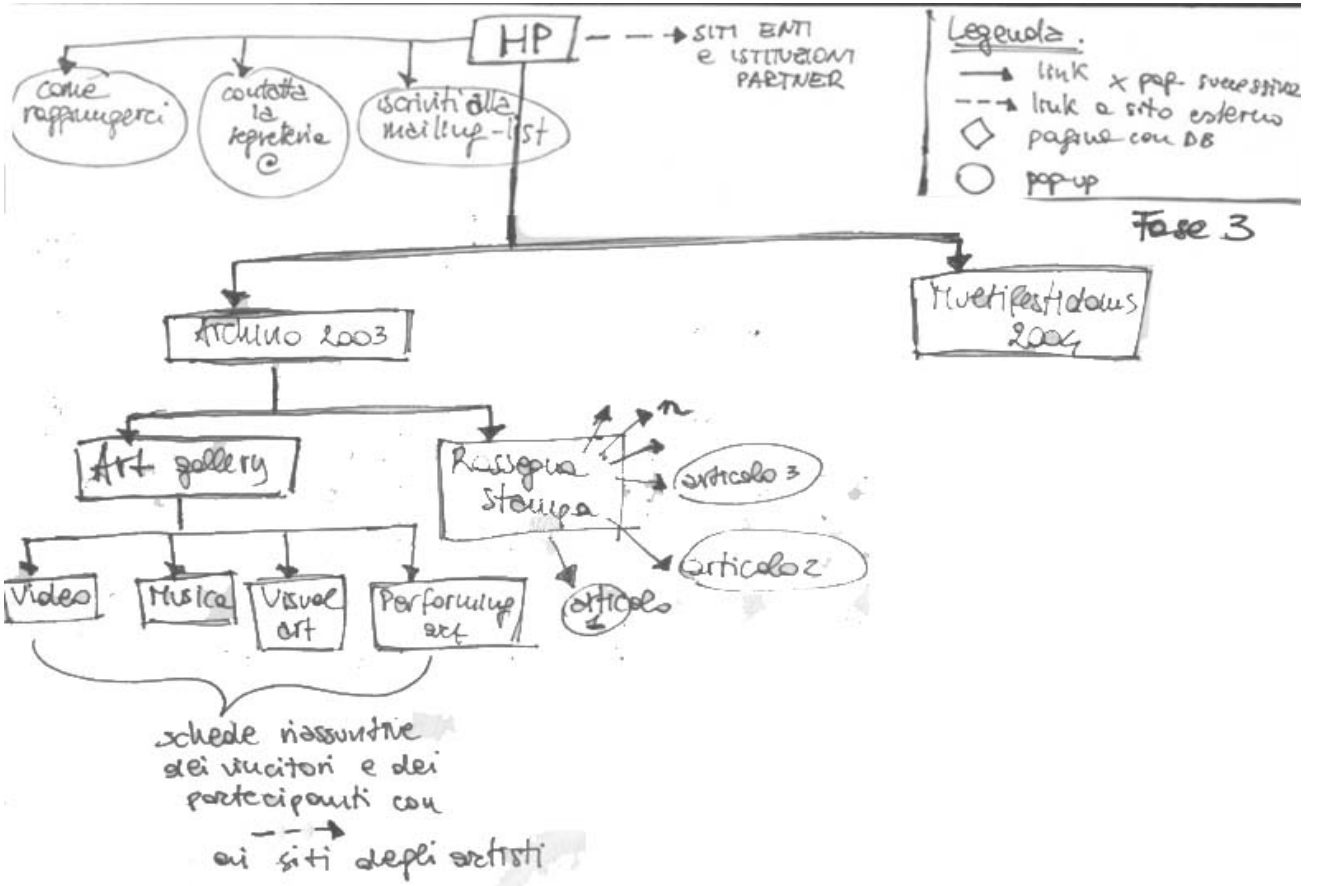 HP
SITI ENTI
E ISTITUZIONI
PARTNER
Legenda.
link x pag. successiva
link a sito esterno
pagine con DB
pop-up
Fase 3
come
raggiungerci
contatta
la
segreteria
@
iscriviti alla
mailing-list
Archivio 2003
Multifestidams
2004
Art gallery
Rassegna
stampa
n
articolo 3
articolo 2
articolo
1
Video
Musica
Visual
art
Performing
art
schede riassuntive
dei vincitori e dei
partecipanti con
ai siti degli artisti